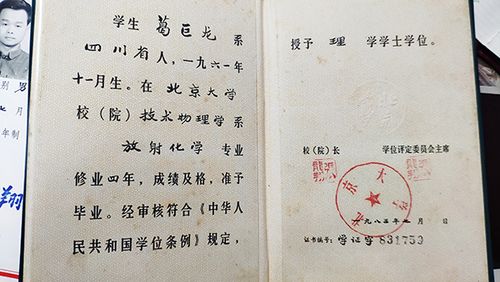 别 男
月
年制
翔
学生 葛巨龙 系
四川省人，一九六一年
十一月生。在 北京大学
校（院）技术物理学系
放射化学 专业
修业四年，成绩及格，准予
毕业。经审核符合《中华人
民共和国学位条例》规定，
授予 理 学学士学位。
校（院）长 学位评定委员会主席
北京大学
一九八三年 月 日
证书编号：学证字 831759